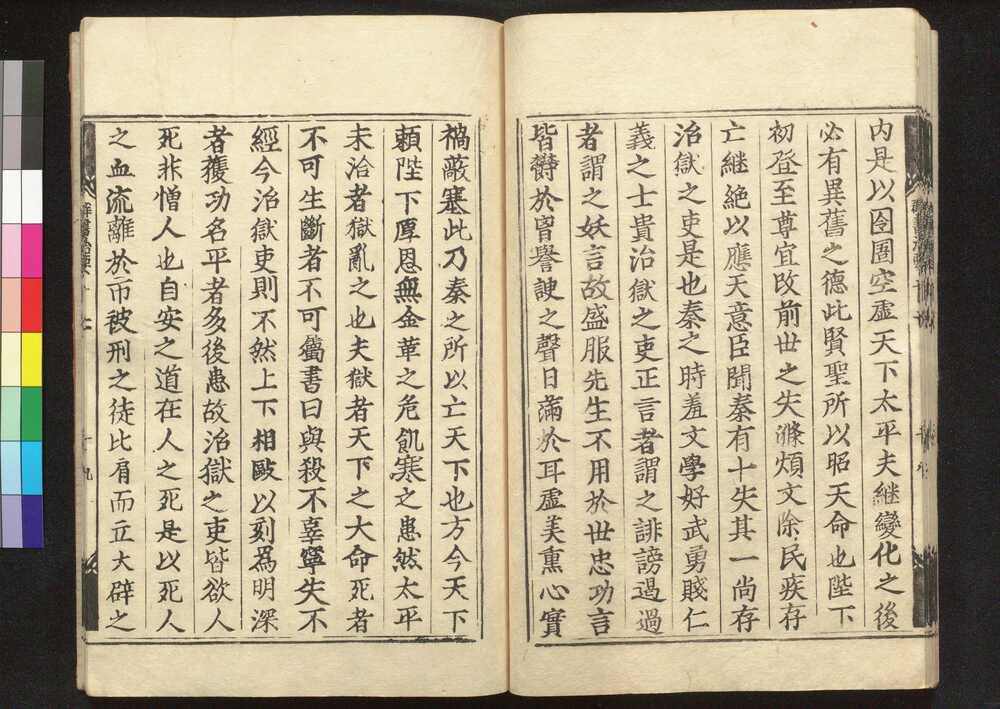 内是以囹圄空虛天下太平夫継變化之後
必有異舊之德此賢聖所以昭天命也陛下
初登至尊宜改前世之失滌煩文除民疾存
亡継絶以應天意臣聞秦有十失其一尚存
治獄之吏是也秦之時羞文學好武勇賤仁
義之士貴治獄之吏正言者謂之誹謗遏過
者謂之妖言故盛服先生不用於世忠功言
皆欝於胷譽諛之聲日滿於耳虛美熏心實
禍蔽塞此乃秦之所以亡天下也方今天下
頼陛下厚恩無金革之危飢寒之患然太平
未洽者獄亂之也夫獄者天下之大命死者
不可生斷者不可屬書曰與殺不辜寧失不
經今治獄吏則不然上下相毆以刻爲明深
者獲功名平者多後患故治獄之吏皆欲人
死非憎人也自安之道在人之死是以死人
之血流離於市被刑之徒比肩而立大辟之
群書治要十七
十九